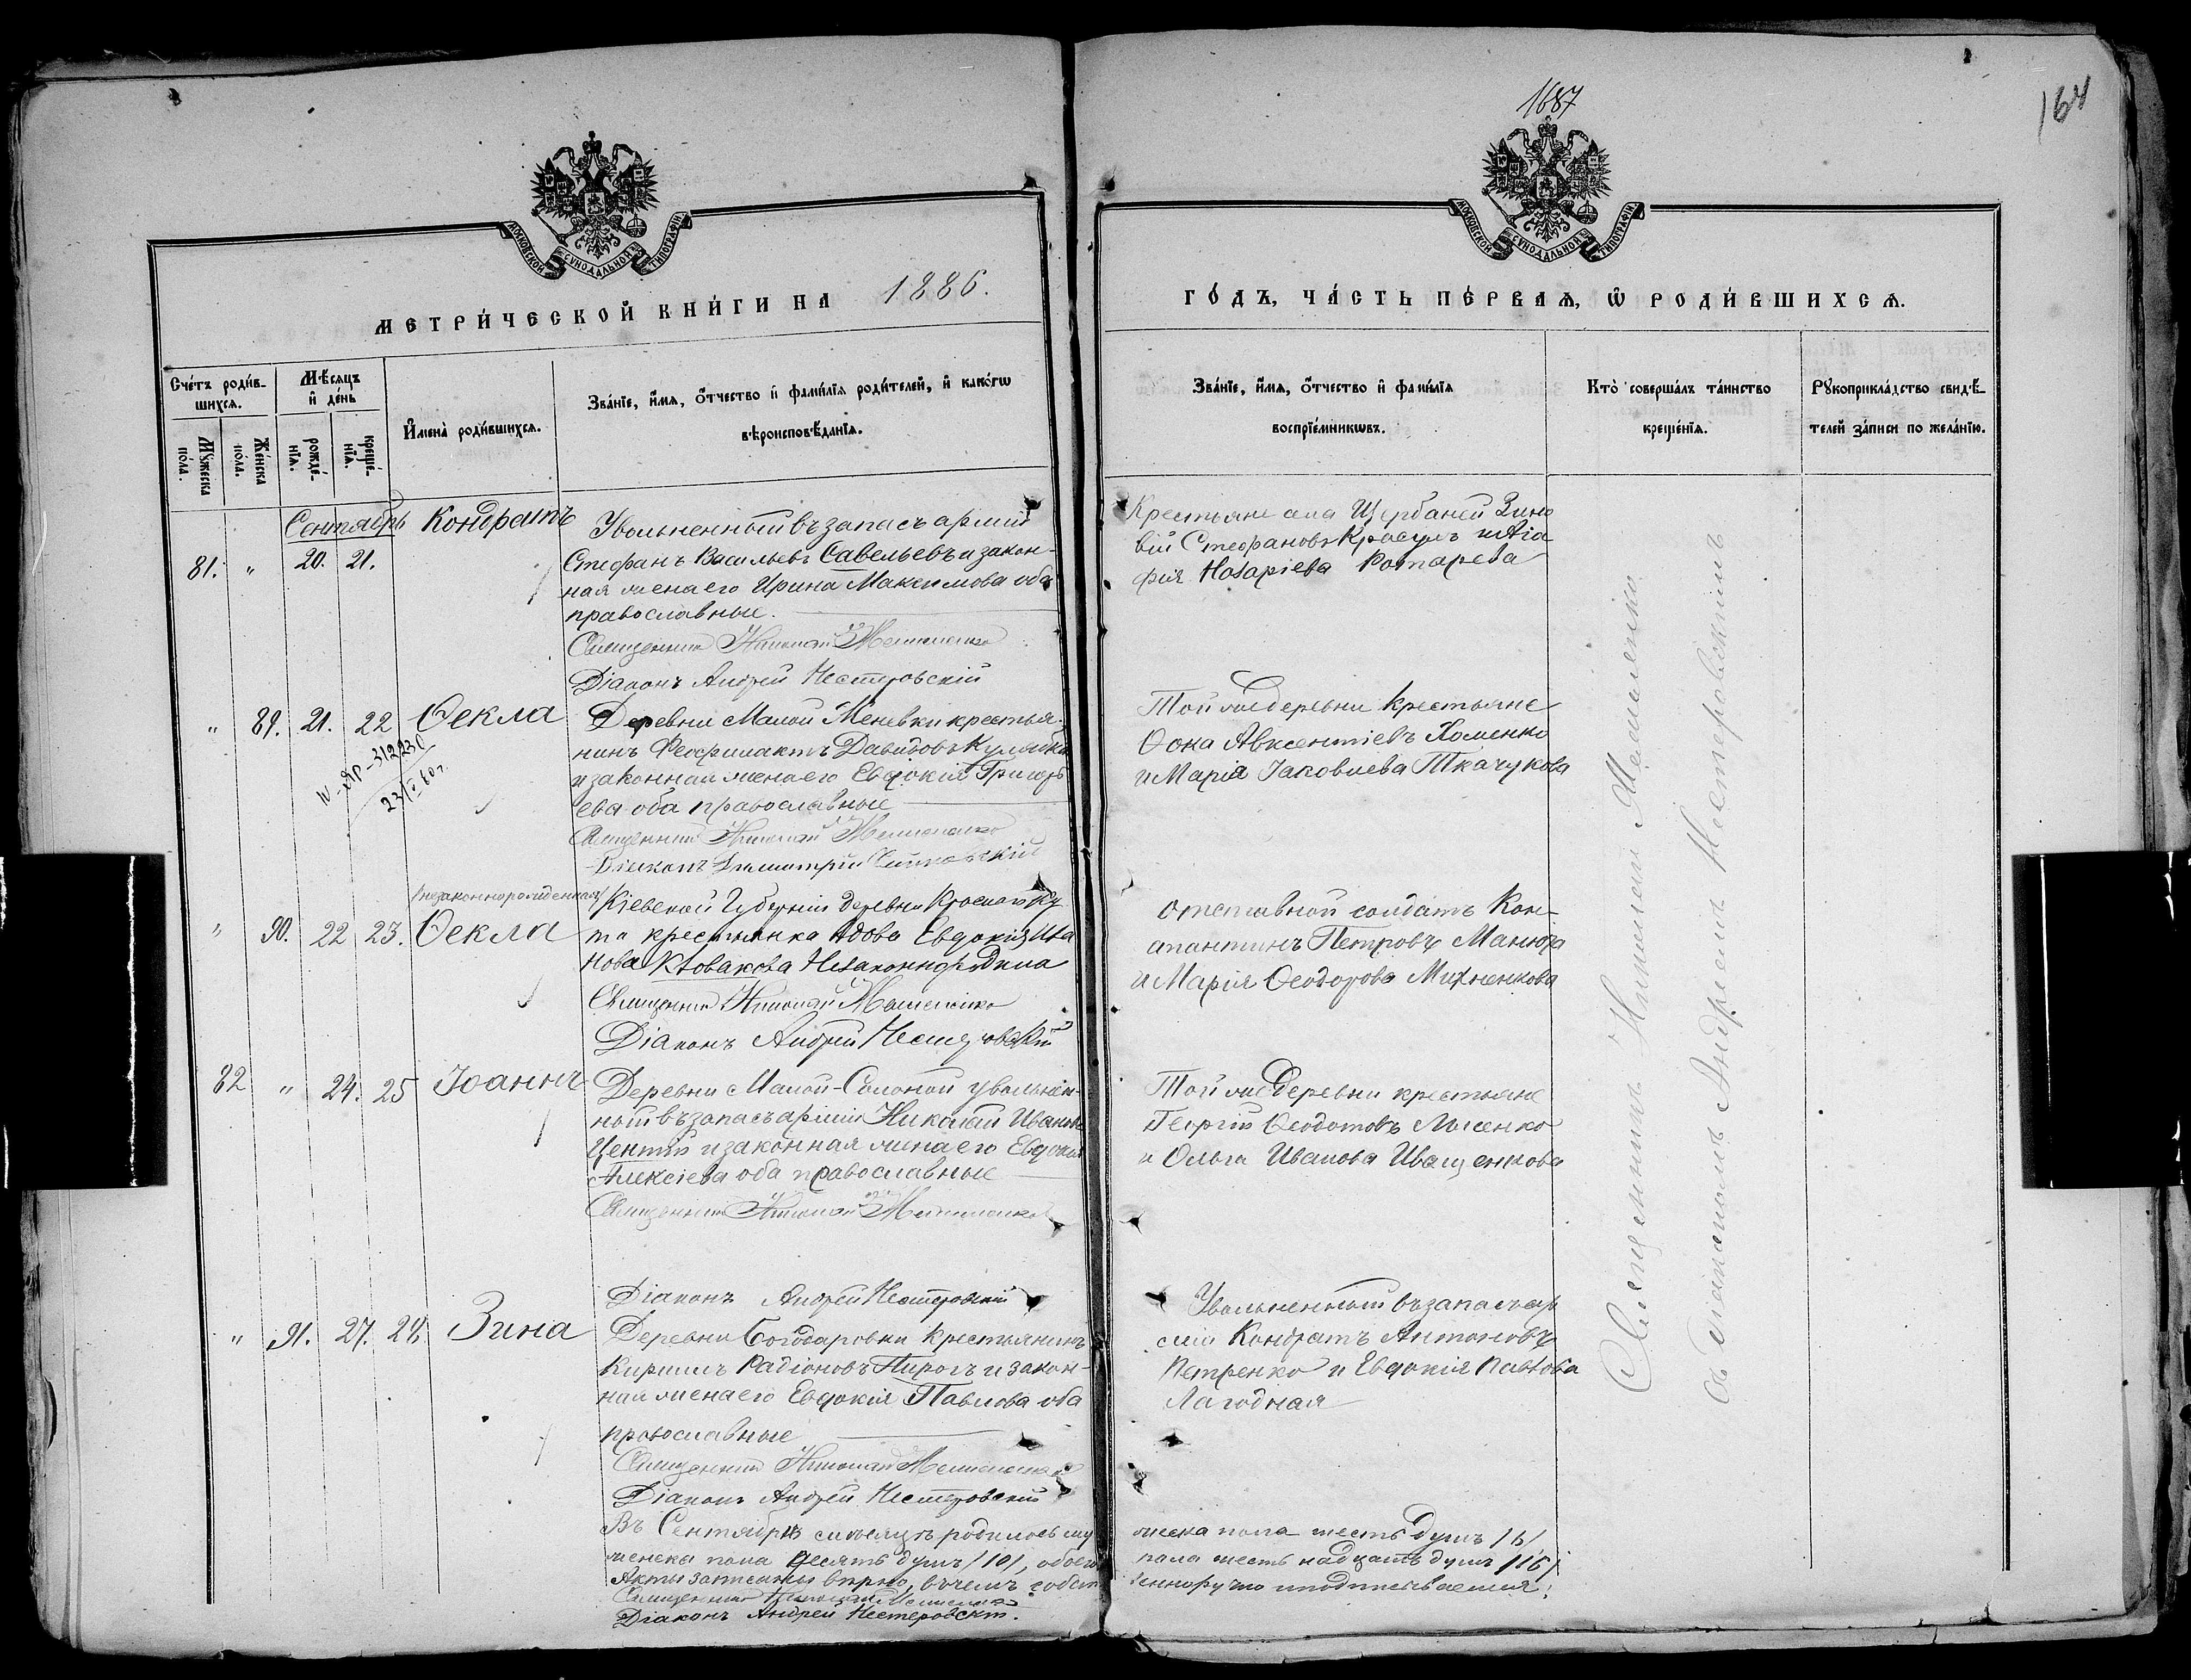 1687
164
МОСКОВСКОЙ СУНОДАЛЬНОЙ ТИПОГРАФІИ
МОСКОВСКОЙ СУНОДАЛЬНОЙ ТИПОГРАФІИ
МЕТРИ́ЧЕСКОЙ КНИ́ГИ НА 1886.
ГО́ДЪ, ЧА́СТЬ ПЕ́РВАѦ, Ѡ РОДИ́ВШИХСѦ.
Сче́тъ роди́вшихсѧ.
Мꙋ́жеска по́ла.
Же́нска по́ла.
Мѣ́сѧцъ и де́нь
рожде́нїѧ.
креще́нїѧ.
Имена̀ роди́вшихсѧ.
Зва́нїе, и́мѧ, о́тчество и фами́лїѧ роди́телей, и како́гѡ
вѣроисповѣ́данїѧ.
Зва́нїе, и́мѧ, о́тчество и фами́лїѧ
воспрїе́мникѡвъ.
Кто̀ соверша́лъ та́инство
креще́нїѧ.
Рꙋкоприкла́дство свидѣ́-
телей за́писи по жела́нїю.
Сентябрь
81. " 20. 21. Кондратъ
Увольненный въ запасъ арміи
Стефанъ Васильевъ Савельевъ и закон-
ная жена его Ирина Максимова оба
православные.
Священникъ Николай
Діаконъ Андрей Нестеровскій
Крестьяне села Щербаней Зино
вій Стефановъ Красулъ и Ага
фія Назаріева Ротарева
" 89. 21. 22 Ѳекла
312230
23/V 60 г.
Деревни Малой Меневки крестья-
нинъ Феофилактъ Давидовъ
и законная жена его Евдокія Григорь
ева оба православные
Священникъ Николай
Діаконъ Димитрій
Той же деревни крестьяне
Ѳока Авксентіевъ Хоменко
и Марія Іаковлева Ткачукова
/незаконнорожденная/
" 90. 22 23. Ѳекла
Кіевской Губерніи деревни Красной Ку
та крестьянка вдова Евдокія Ива
нова Незаконнородила
Священникъ Николай
Діаконъ Андрей Нестеровскій
Отставной солдатъ Кон-
стантинъ Петровъ Манюта
и Марія Ѳеодорова Михненкова
82 " 24. 25 Іоаннъ
Деревни Малой-Солоной увольнен-
ный въ запасъ арміи Николай Ивановъ
и законная жена его Евдокія
Алексіева оба православные
Священникъ Николай
Діаконъ Андрей Нестеровскій
Той же деревни крестьяне
Георгій Ѳеодотовъ Лысенко
и Ольга Иванова Иващенкова
" 91. 27. 28. Зина
Деревни Богодаровки крестьянинъ
Кириллъ Радіоновъ Пирогъ и закон-
ная жена его Евдокія Павлова оба
православные
Священникъ Николай
Діаконъ Андрей Нестеровскій
Увольненный въ запасъ ар
міи Кондратъ Антоновъ
Петренко и Евдокія Павлова
Лагодная
Священникъ Николай
съ діакономъ Андреемъ Нестеровскимъ
Въ Сентябрѣ мѣсяцѣ родилось му
жеска пола шесть душъ /6/
женска пола десять душъ /10/, обоего
пола шестьнадцать душъ /16/
Акты записаны вѣрно, въ чемъ собст
венноручно и подписываемся:
Священникъ Николай
Діаконъ Андрей Нестеровскій.